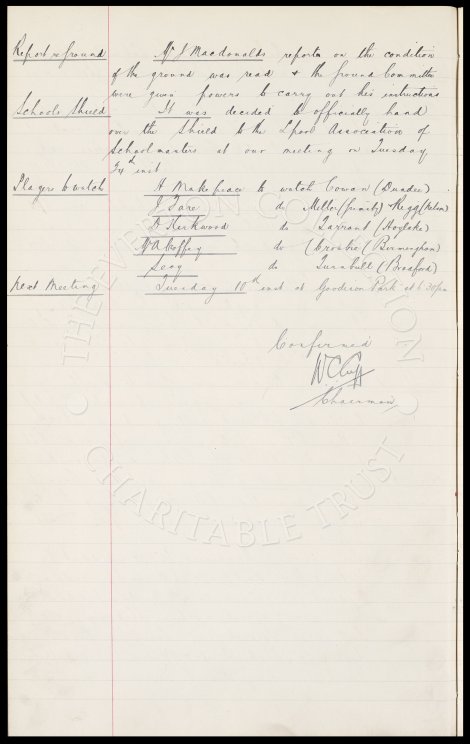 Report re Ground Mr J Macdonalds report on the condition
of the ground was read & the Ground Committee
were given powers to carry out his instructions
Schools Shield It was decided to officially hand
over the Shield to the Lpool Association of
Schoolmasters at our meeting on Tuesday
24th inst
Players to watch H Makepeace to watch Cowan (Dundee)
J Fare do Miller (Family) & Kegg (Nelson)
D Kirkwood do Tarrant (Hoylake)
W A Coffey do Crosbie (Birmingham)
Secy do Turnbull (Bradford)
Next Meeting Tuesday 10th inst at Goodison Park at 6.30pm
Confirmed
W C Cuff
Chairman
THE EVERTON COLLECTION
CHARITABLE TRUST